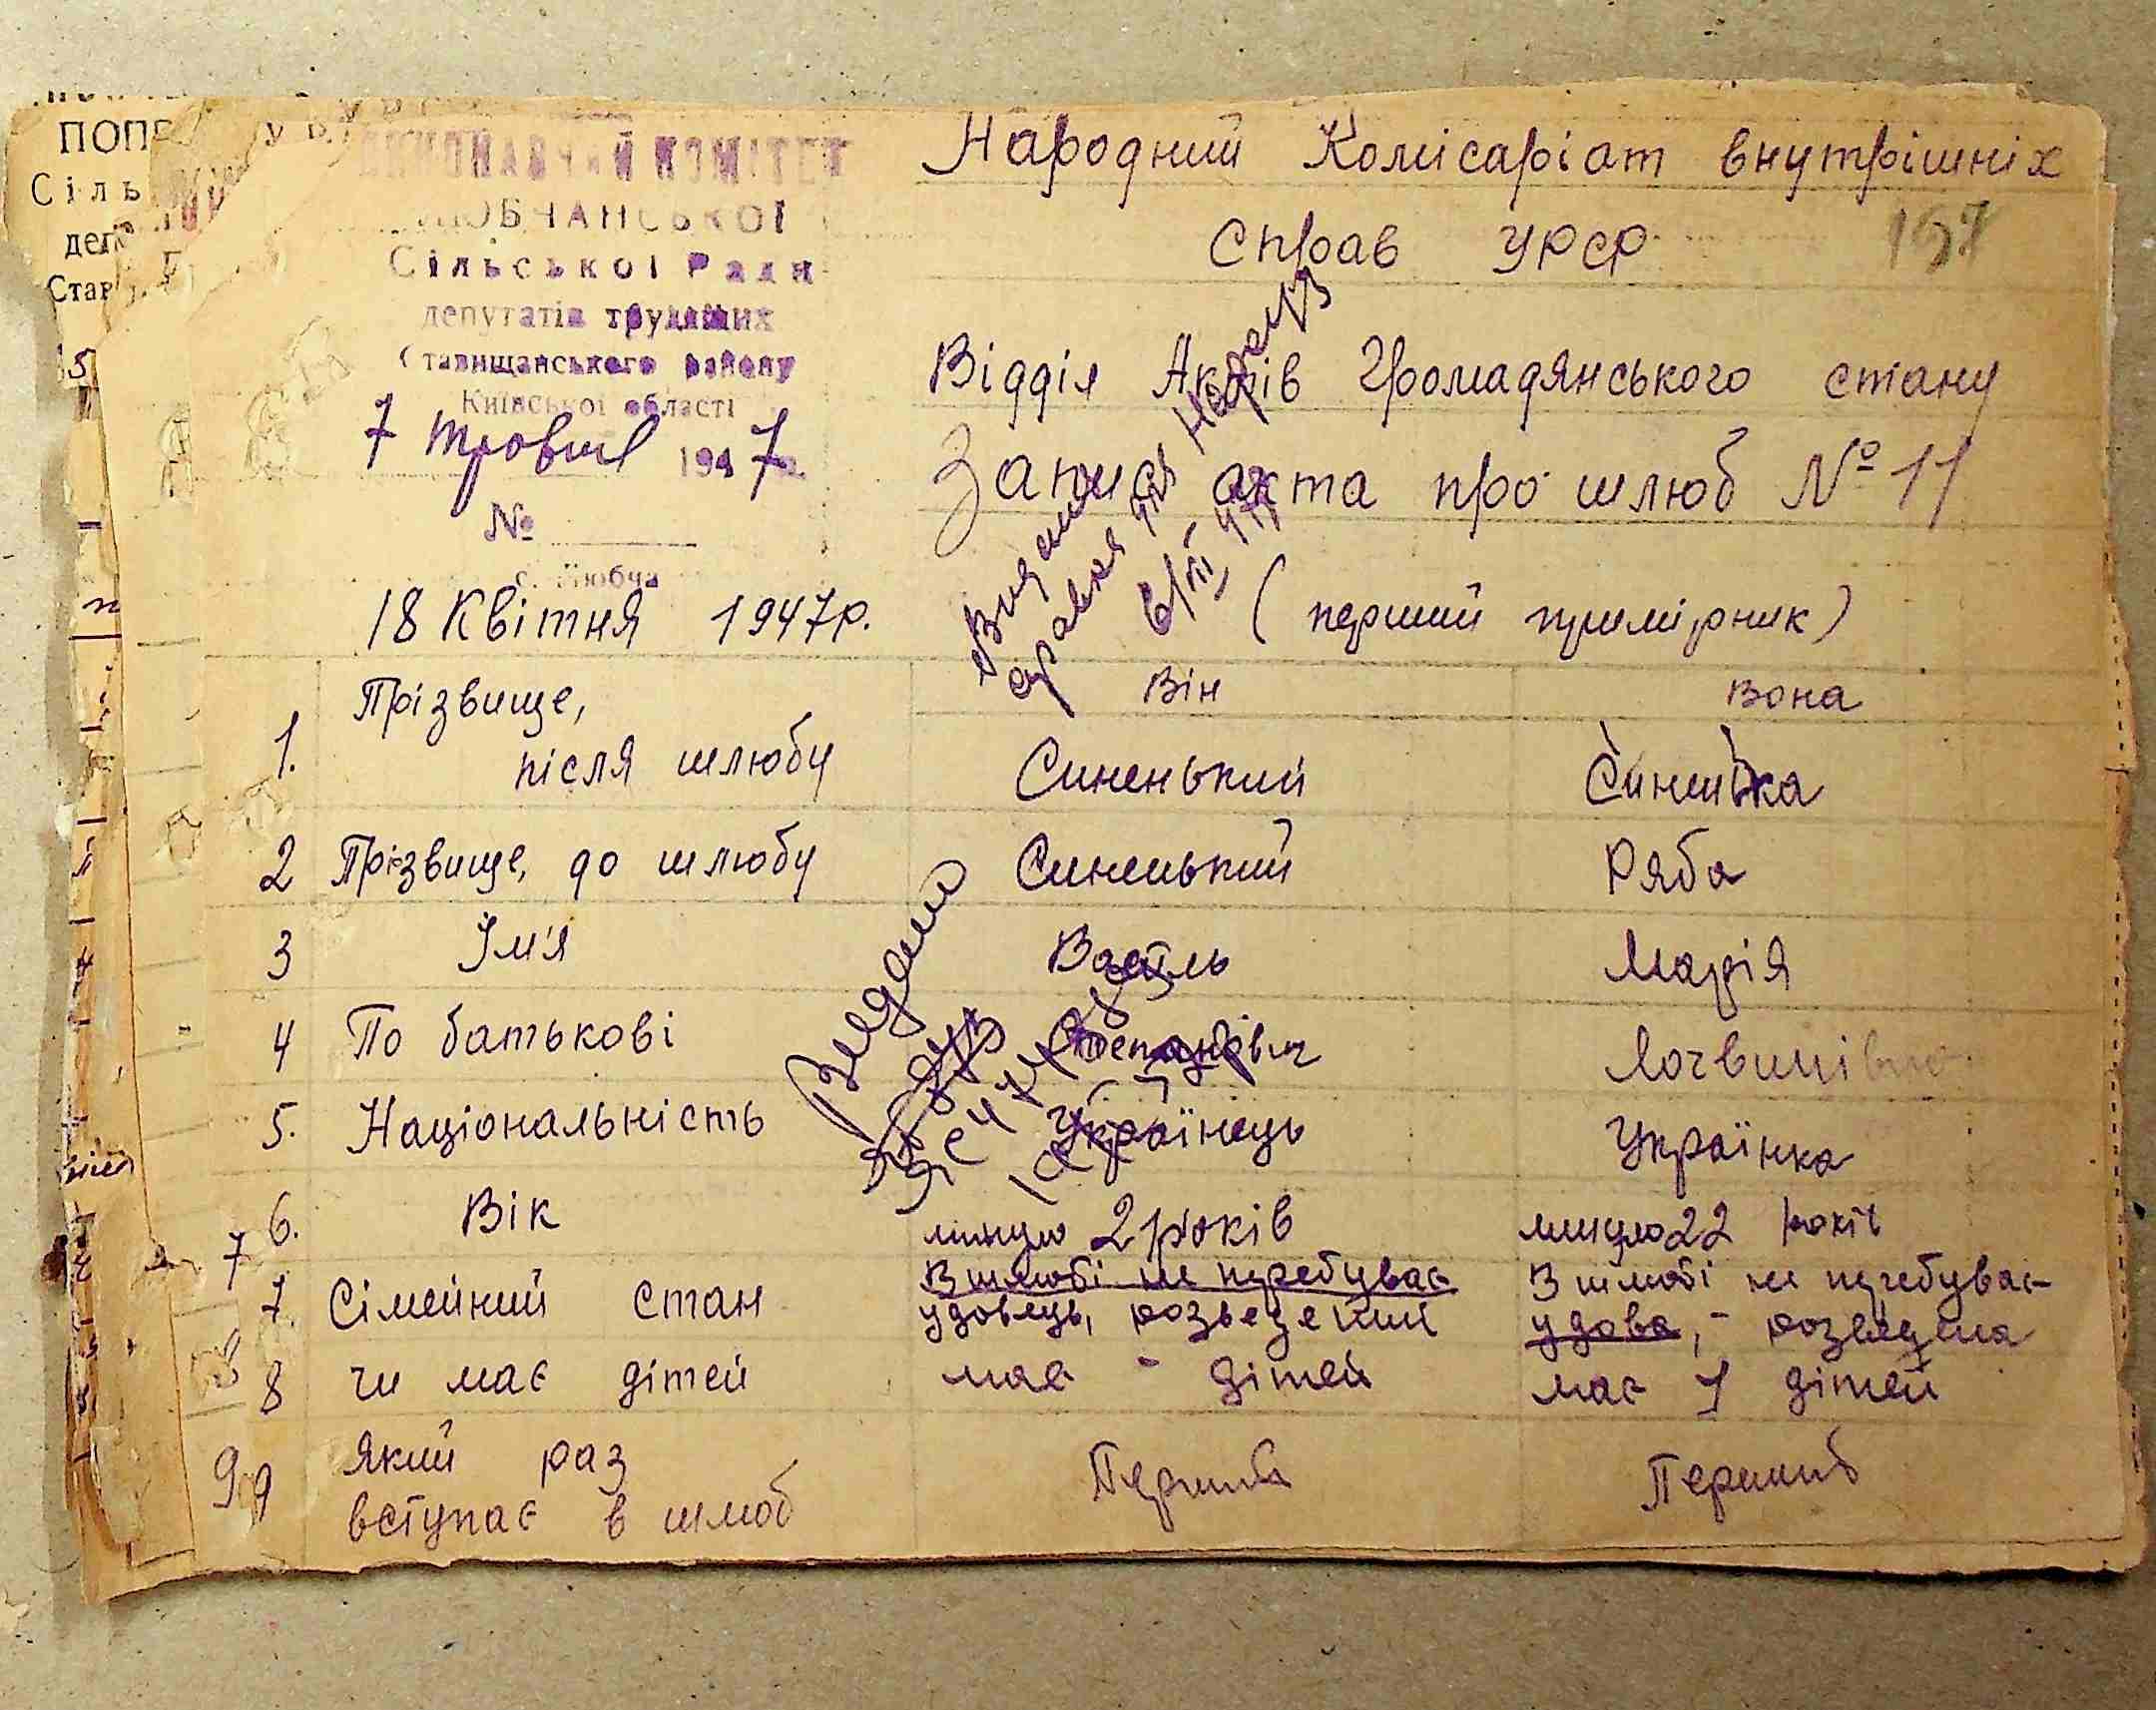 ВИКОНАВЧИЙ КОМІТЕТ
ЛЮБЧАНСЬКОЇ
Сільської Ради
депутатів трудящих
Ставищанського району
Київської області
7 травня 1947р.
№
с. Любча
18 Квітня 1947р.
Народний Комісаріат внутрішніх
Справ УРСР
167
Відділ Актів Громадянського стану
Запис акта про шлюб № 11
(перший примірник)
Видана
справка для
6/III 47р
Він
Вона
1. Прізвище,
після шлюбу Синенький Синенька
2 Прізвище, до шлюбу Синенький Ряба
3 Ім'я Василь Марія
4 По батькові Степанович Логвинівна
5. Національність Українець Українка
6. Вік минуло 2 років минуло 22 років
7. Сімейний стан В шлюбі не перебуває В шлюбі не перебуває
удовець, розведений удова, - розведена
8 чи має дітей має - дітей має 1 дітей
9 який раз
вступає в шлюб Перший Перший
Видано
ПОПР
Сіль
деп
Став